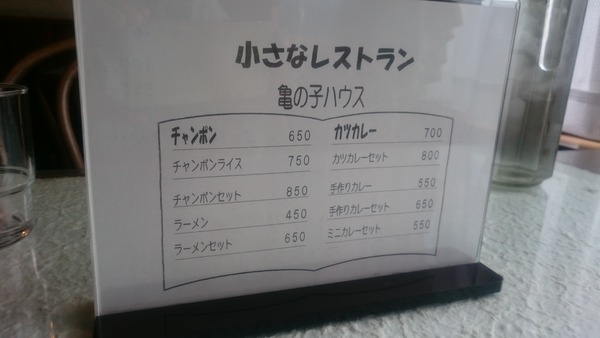 小さなレストラン
亀の子ハウス
チャンポン 650
チャンポンライス 750
チャンポンセット 850
ラーメン 450
ラーメンセット 650
カツカレー 700
カツカレーセット 800
手作りカレー 550
手作りカレーセット 650
ミニカレーセット 550